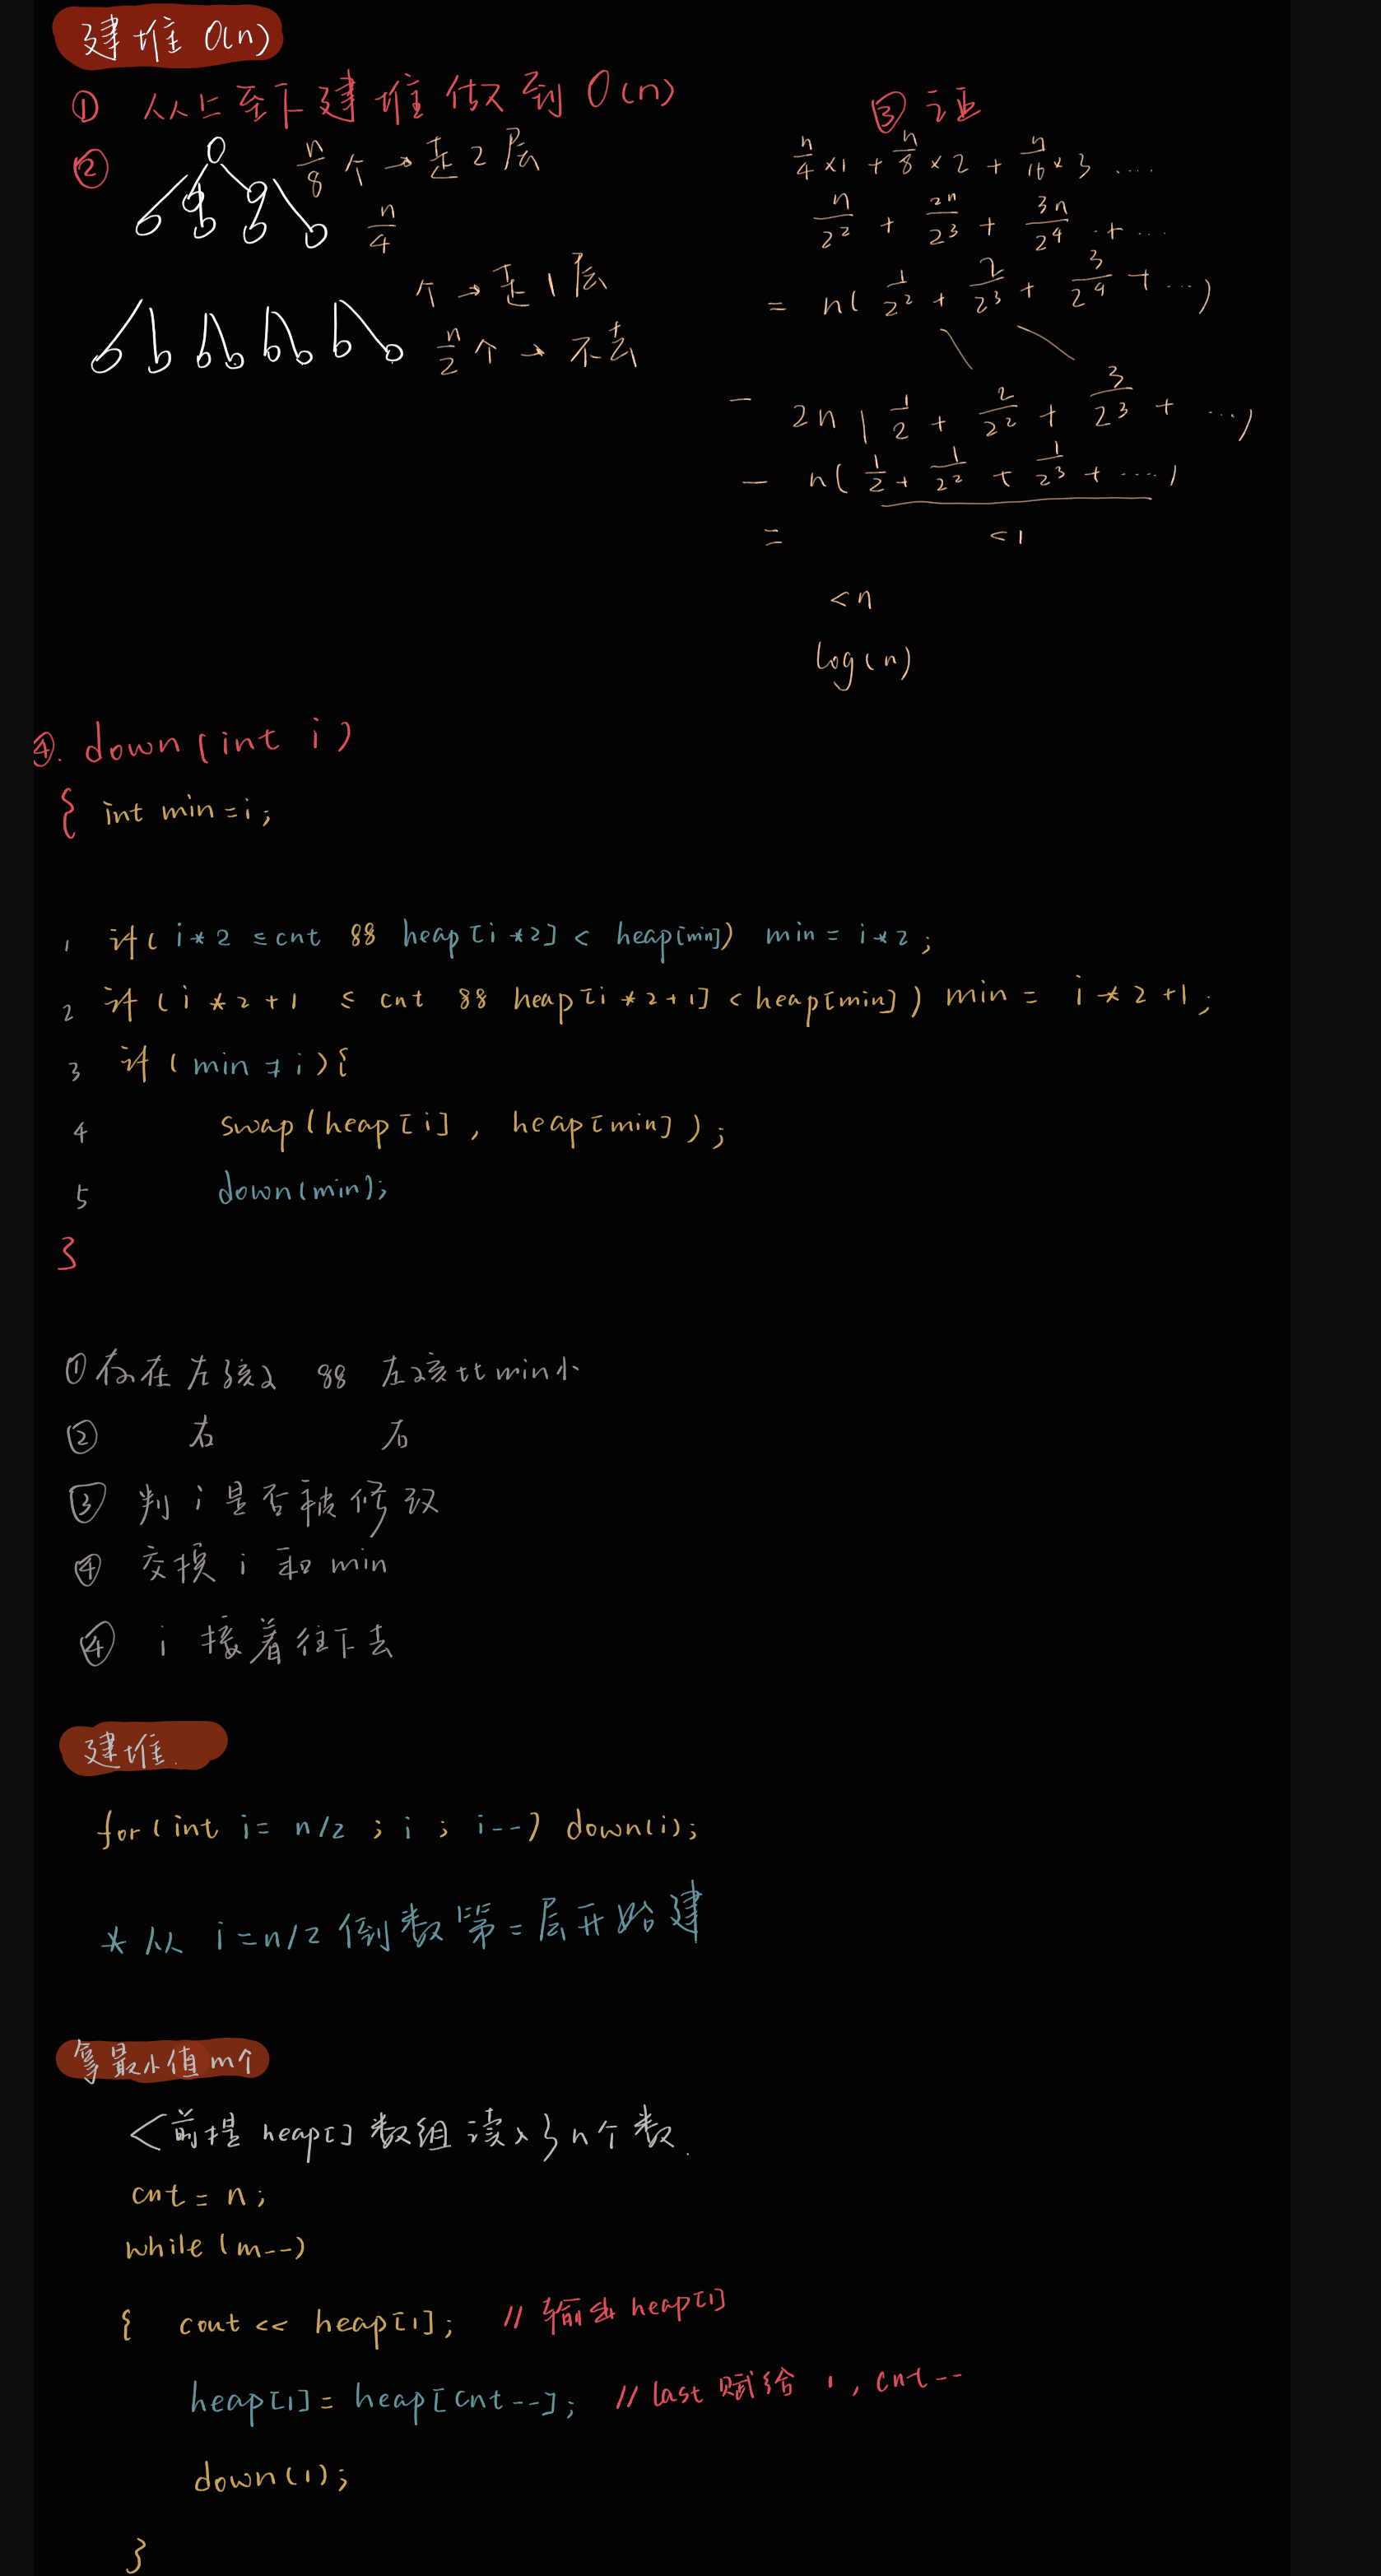 建堆 O(n)
① 从上至下建堆 做到 O(n)
② n/8 个 → 走 2 层
n/4
个 → 走 1 层
n/2 个 → 不去
③ 证
n/4 ×1 + n/8 × 2 + n/16 × 3 ....
n/2² + 2n/2³ + 3n/2⁴ + ...
= n( 1/2² + 2/2³ + 3/2⁴ + ...)
- 2n ( 1/2 + 2/2² + 3/2³ + ...)
- n( 1/2 + 1/2² + 1/2³ + ....)
= <1
<n
log(n)
④. down(int i)
{ int min = i;
1 if( i*2 ≤ cnt && heap[i*2] < heap[min]) min = i*2;
2 if (i*2+1 ≤ cnt && heap[i*2+1] < heap[min]) min = i*2+1;
3 if (min ≠ i){
4 swap(heap[i], heap[min]);
5 down(min);
}
① 存在左孩子 && 左孩比min小
② 右 右
③ 判 i 是否被修改
④ 交换 i 和 min
④ i 接着往下去
建堆.
for(int i= n/2 ; i ; i--) down(i);
* 从 i=n/2 倒数第二层开始建
拿最小值m个
<前提 heap[] 数组读入了n个数.
cnt = n;
while(m--)
{ cout << heap[1]; // 输出 heap[1]
heap[1] = heap[cnt--]; // last 赋给 1, cnt--
down(1);
}